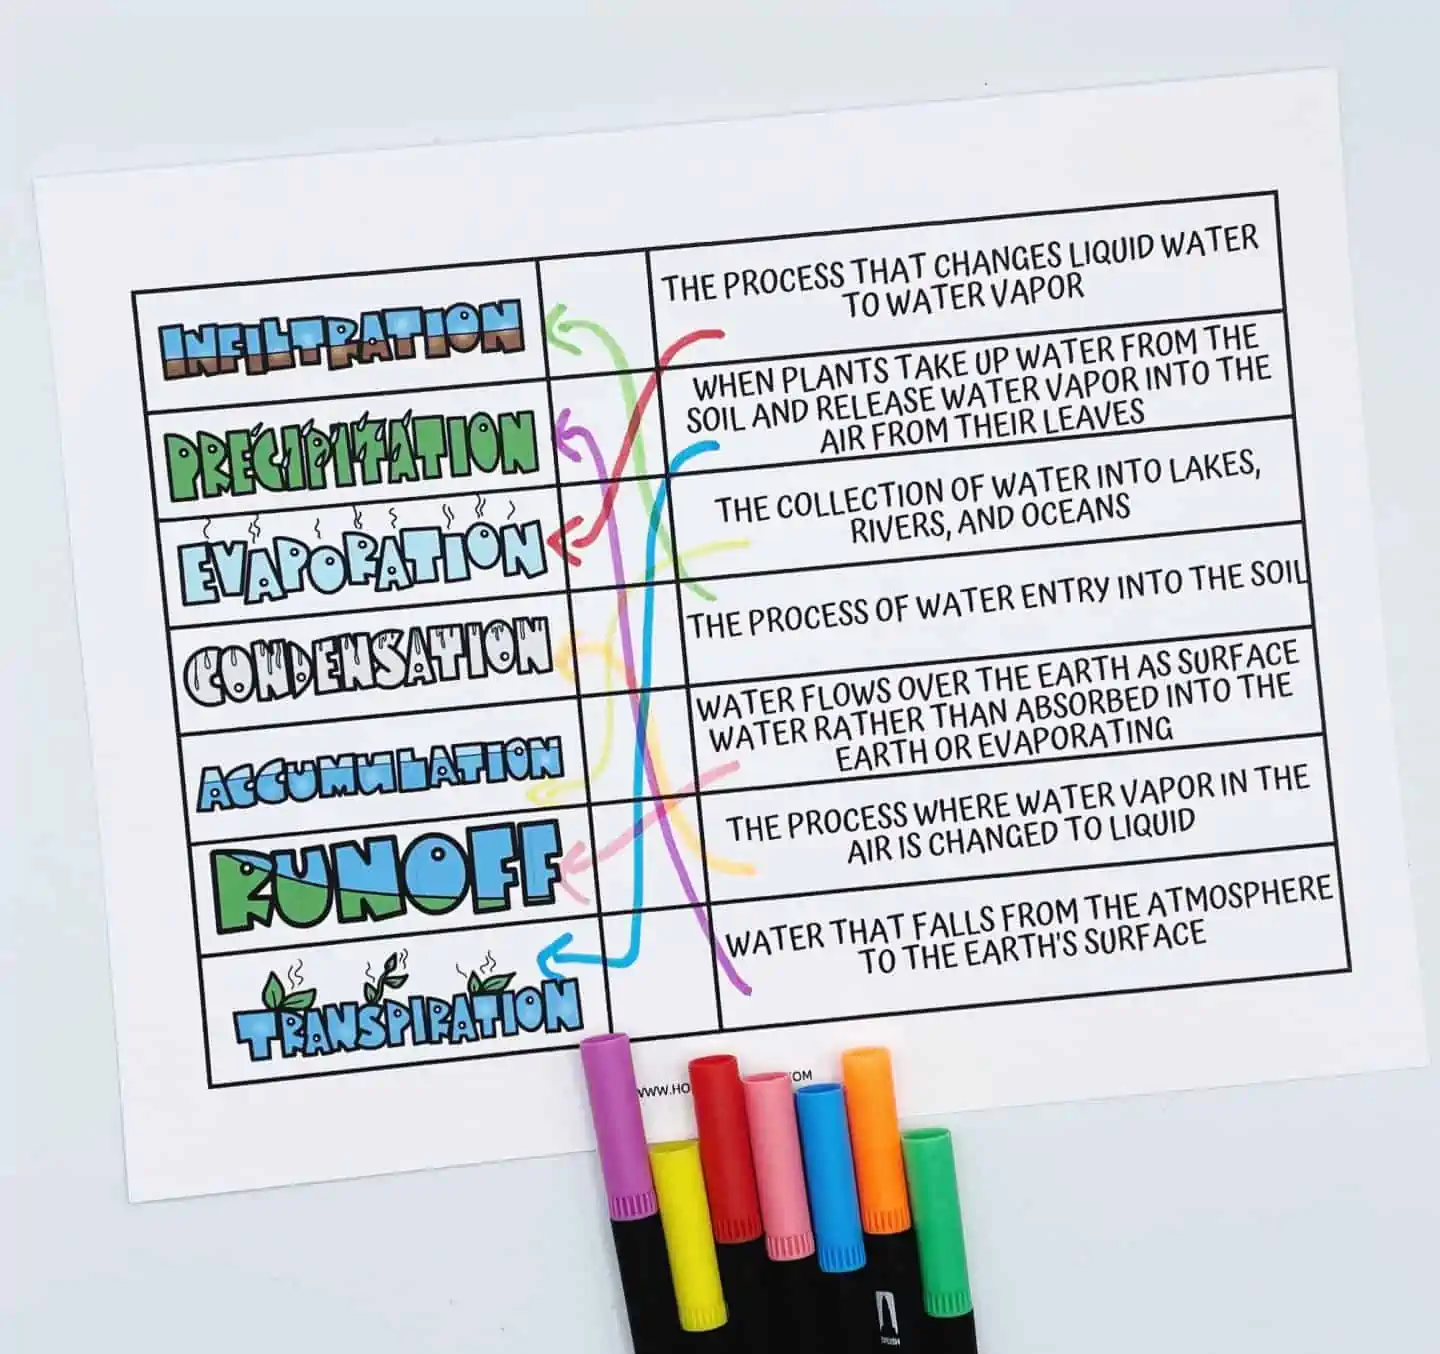 INFILTRATION
THE PROCESS THAT CHANGES LIQUID WATER
TO WATER VAPOR
PRECIPITATION
WHEN PLANTS TAKE UP WATER FROM THE
SOIL AND RELEASE WATER VAPOR INTO THE
AIR FROM THEIR LEAVES
EVAPORATION
THE COLLECTION OF WATER INTO LAKES,
RIVERS, AND OCEANS
CONDENSATION
THE PROCESS OF WATER ENTRY INTO THE SOIL
ACCUMULATION
WATER FLOWS OVER THE EARTH AS SURFACE
WATER RATHER THAN ABSORBED INTO THE
EARTH OR EVAPORATING
RUNOFF
THE PROCESS WHERE WATER VAPOR IN THE
AIR IS CHANGED TO LIQUID
TRANSPIRATION
WATER THAT FALLS FROM THE ATMOSPHERE
TO THE EARTH'S SURFACE